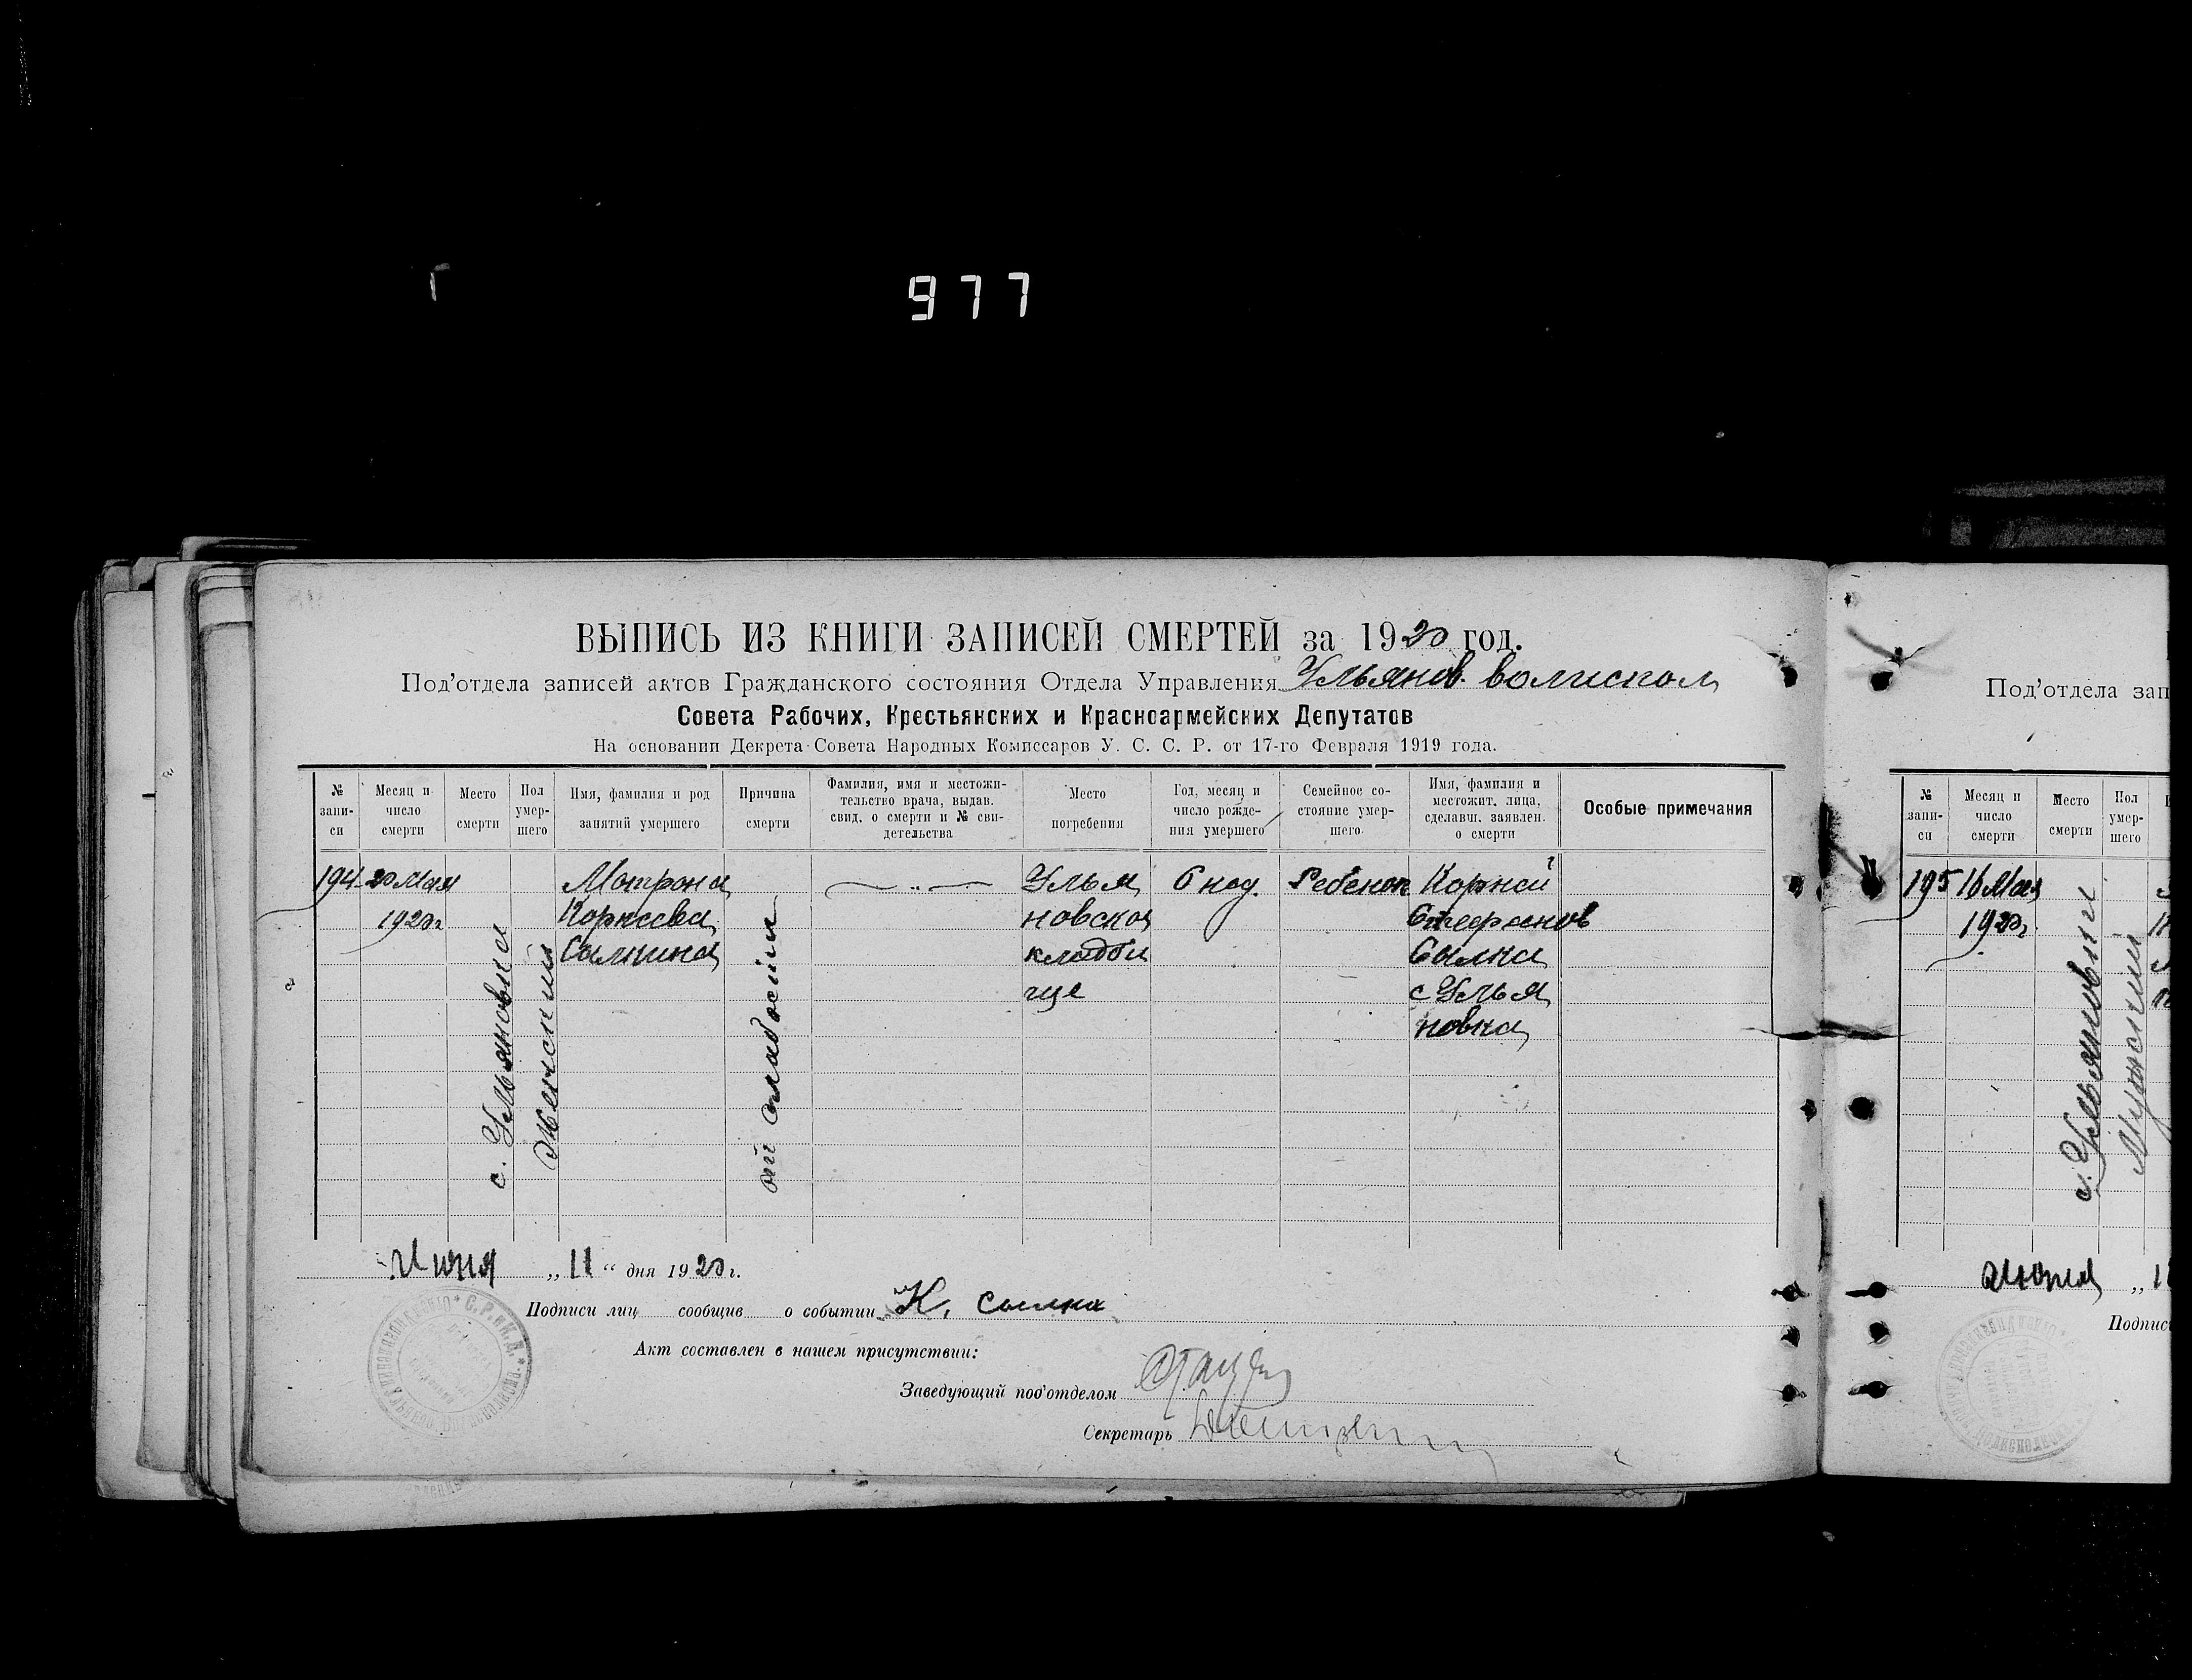 977
ВЫПИСЬ ИЗ КНИГИ ЗАПИСЕЙ СМЕРТЕЙ за 1920 год.
Под'отдела записей актов Гражданского состояния Отдела Управления Ульянов. волисполк
Совета Рабочих, Крестьянских и Красноармейских Депутатов
На основании Декрета Совета Народных Комиссаров У. С. С. Р. от 17-го Февраля 1919 года.
№ запи- си
Месяц и число смерти
Место смерти
Пол умер- шего
Имя, фамилия и род занятий умершего
Причина смерти
Фамилия, имя и местожи- тельство врача, выдав. свид. о смерти и № сви- детельства
Место погребения
Год, месяц и число рожде- ния умершего
Семейное со- стояние умер- шего
Имя, фамилия и местожит. лица, сделавш. заявлен. о смерти
Особые примечания
194
20 Мая
1920 г
с. Ульяновка
Женский
Матрона
Корнеева
Сылкина
от слабости
Улья
новское
кладби
ще
6 нед.
Ребенок
Корней
Стефанов
Сылка
с Улья
новка
Июня „11“ дня 1920 г.
Подписи лиц сообщив о событии К. Сылка
Акт составлен в нашем присутствии:
Заведующий под'отделом
Секретарь
Под'отдела зап
№ запи- си
Месяц и число смерти
Место смерти
Пол умер- шего
195
16 Мая
1920 г
с. Ульяновки
Мужский
Июня „1
Подпис